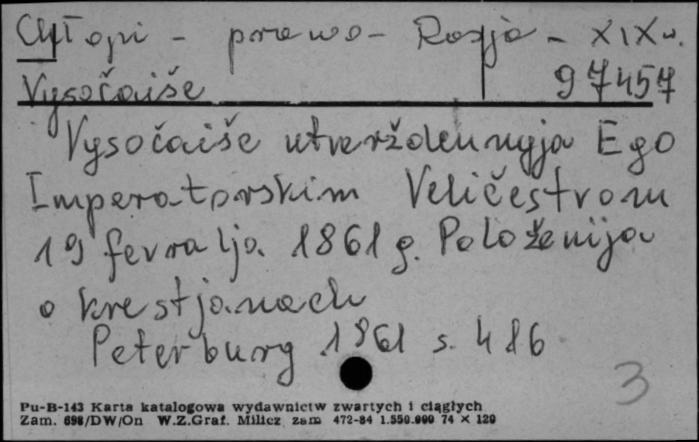 Chłopi - prawo - Rosja - XIX w.
Vysočaiše 97457
Vysočaiše utverždennyja Ego
Imperatorskim Veličestvom
19 fevralja 1861 g. Położenija
o krestjanach
Peterburg 1861 s. 486
3
Pu-B-143 Karta katalogowa wydawnictw zwartych i ciągłych
Zam. 698/DW/On W.Z.Graf. Milicz zam 472-84 1.550.000 74 × 120